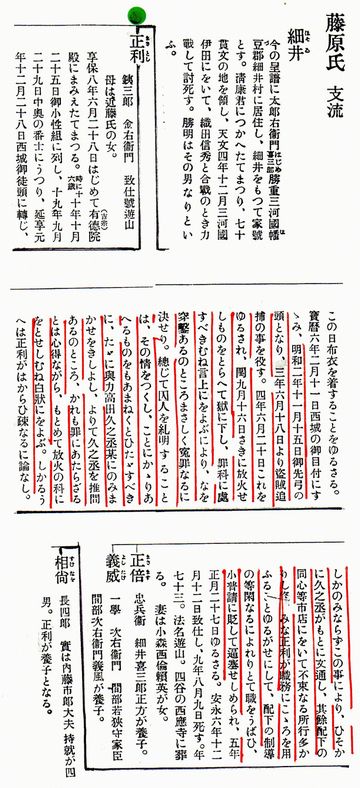 藤原氏 支流
細井
今の呈譜に太郎右衛門喜三郎勝重三河國幡
豆郡細井村に居住し、細井をもつて家號
とす。清康君につかへたてまつり、七十
貫文の地を領し、天文四年十二月三河國
伊田にをいて、織田信秀と合戰のとき力
戰して討死す。勝明はその男なりとい
ふ。
正利
銕三郎 金右衛門 致仕號遊山
母は近藤氏の女。
享保八年六月二十八日はじめて有德院
殿にまみえたてまつる。時に十六歳 十年十月
二十五日御小性組に列し、十九年九月
二十九日中奥の番士にうつり、延享元
年十二月二十八日西城御徒頭に轉じ、
この日布衣を着することをゆるさる。
寶曆六年二月十一日西城の御目付にす
ゝみ、明和二年十一月十五日御先弓の
頭となり、三年六月十八日より盜賊追
捕の事を役す。四年六月二十日これを
ゆるされ、閏九月十六日さきに放火せ
しものをとらへて獄に下し、罪科に處
すべきむね言上にをよぶにより、なを
穿鑿あるのところまさしく寃罪なるに
決せり。總じて囚人を糺明すること
は、その情をつくし、ことにかゝりあ
へるものをもあまねくとひたゞすべき
に、たゞに與力高田久之丞某にのみま
かせをきしよし、よりて久之丞を推問
あるのところ、かれも罪にあたらざる
とは心得ながら、もとめて放火の科に
をとせしむね白狀にをよぶ。しかるう
へは正利がはからひ疎なるに論なし。
しかのみならずこの事により、ひそか
に久之丞がもとに文通し、其餘配下の
同心等市店にをいて不束なる所行多か
りし條、みな正利が職務にこゝろを用
ふることゆるがせにして、配下の制導
の等閑なるによれりとて職をうばひ、
小普請に貶して逼塞せしめられ、五年
正月二十七日ゆるさる。安永六年十二
月十一日致仕し、九年八月九日死す。年
七十三。法名遊山。四谷の西應寺に葬
る。 妻は小森西倫頼英が女。
正倍
忠兵衛 細井喜三郎正方が養子。
義威
一學 次右衛門 間部若狹守家臣
間部次右衛門義風が養子。
相尙
長四郎 實は内藤市郎大夫持就が四
男。正利が養子となる。